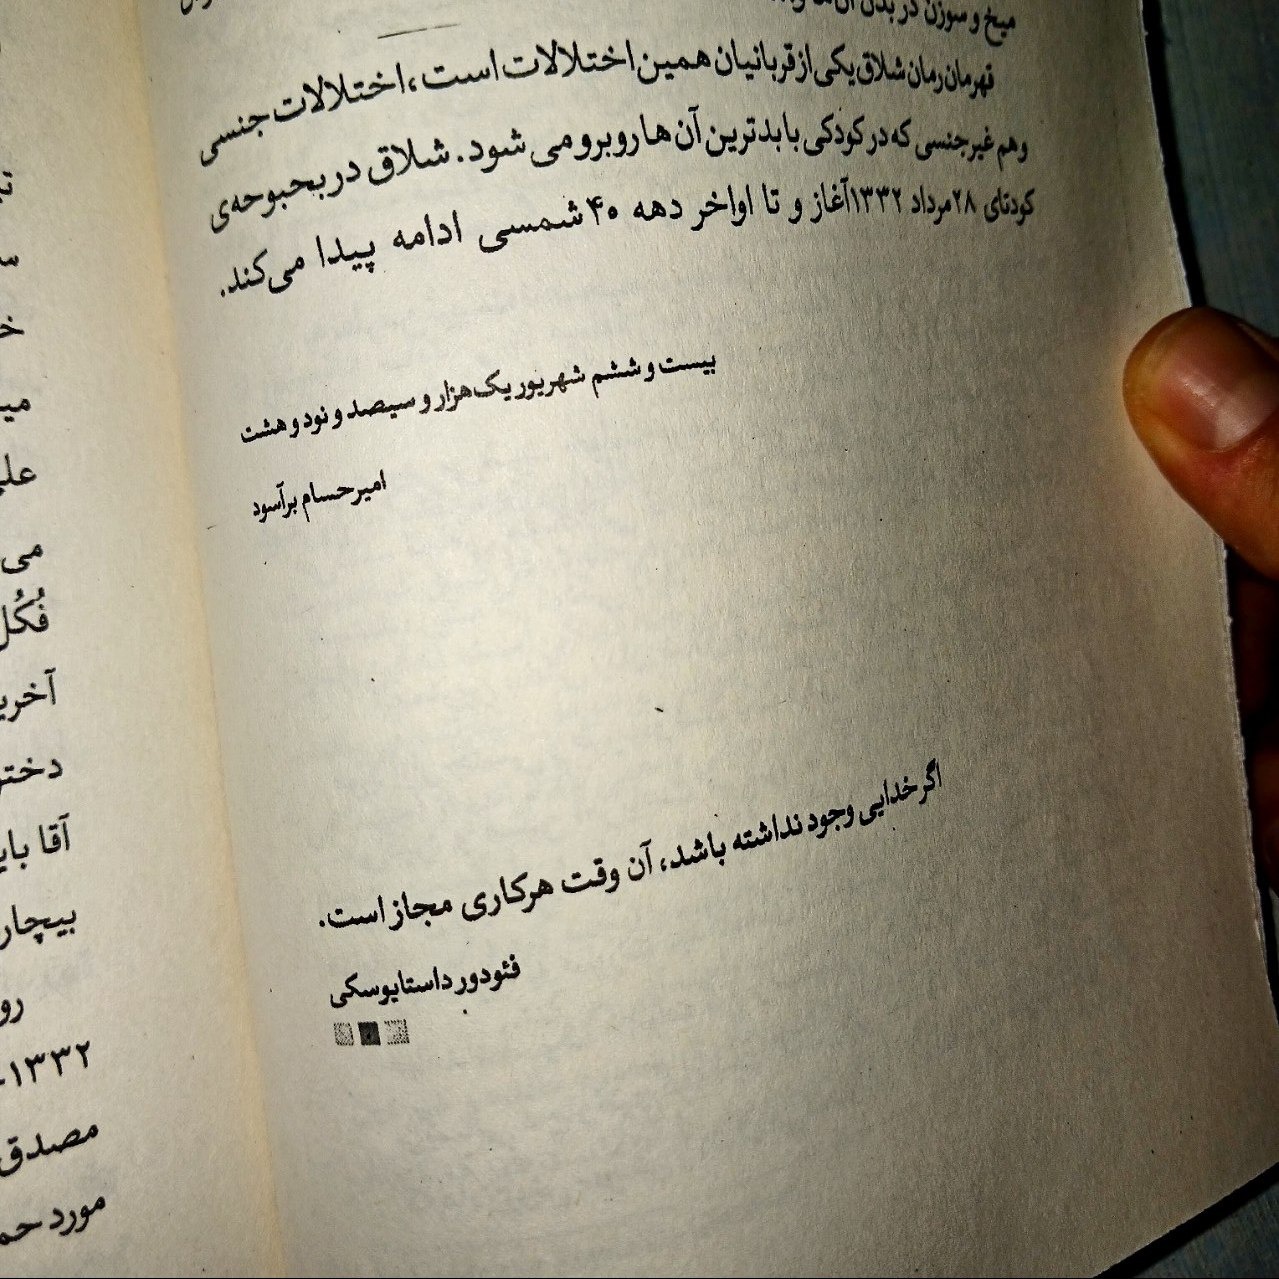 میخ و سوزن در بدن آن‌ها
قهرمان رمان شلاق یکی از قربانیان همین اختلالات است، اختلالات جنسی
و هم غیرجنسی که در کودکی با بدترین آن‌ها روبرو می‌شود. شلاق در بحبوحه‌ی
کودتای ۲۸مرداد ۱۳۳۲آغاز و تا اواخر دهه ۴۰شمسی ادامه پیدا می‌کند.
بیست و ششم شهریور یک‌هزار و سیصد و نود و هشت
امیرحسام برآسود
اگر خدایی وجود نداشته باشد، آن وقت هرکاری مجاز است.
فئودور داستایوسکی
می
فُکُل
آخر
دختر
آقا
رو
۱۳۳۲-
مصدق
مورد